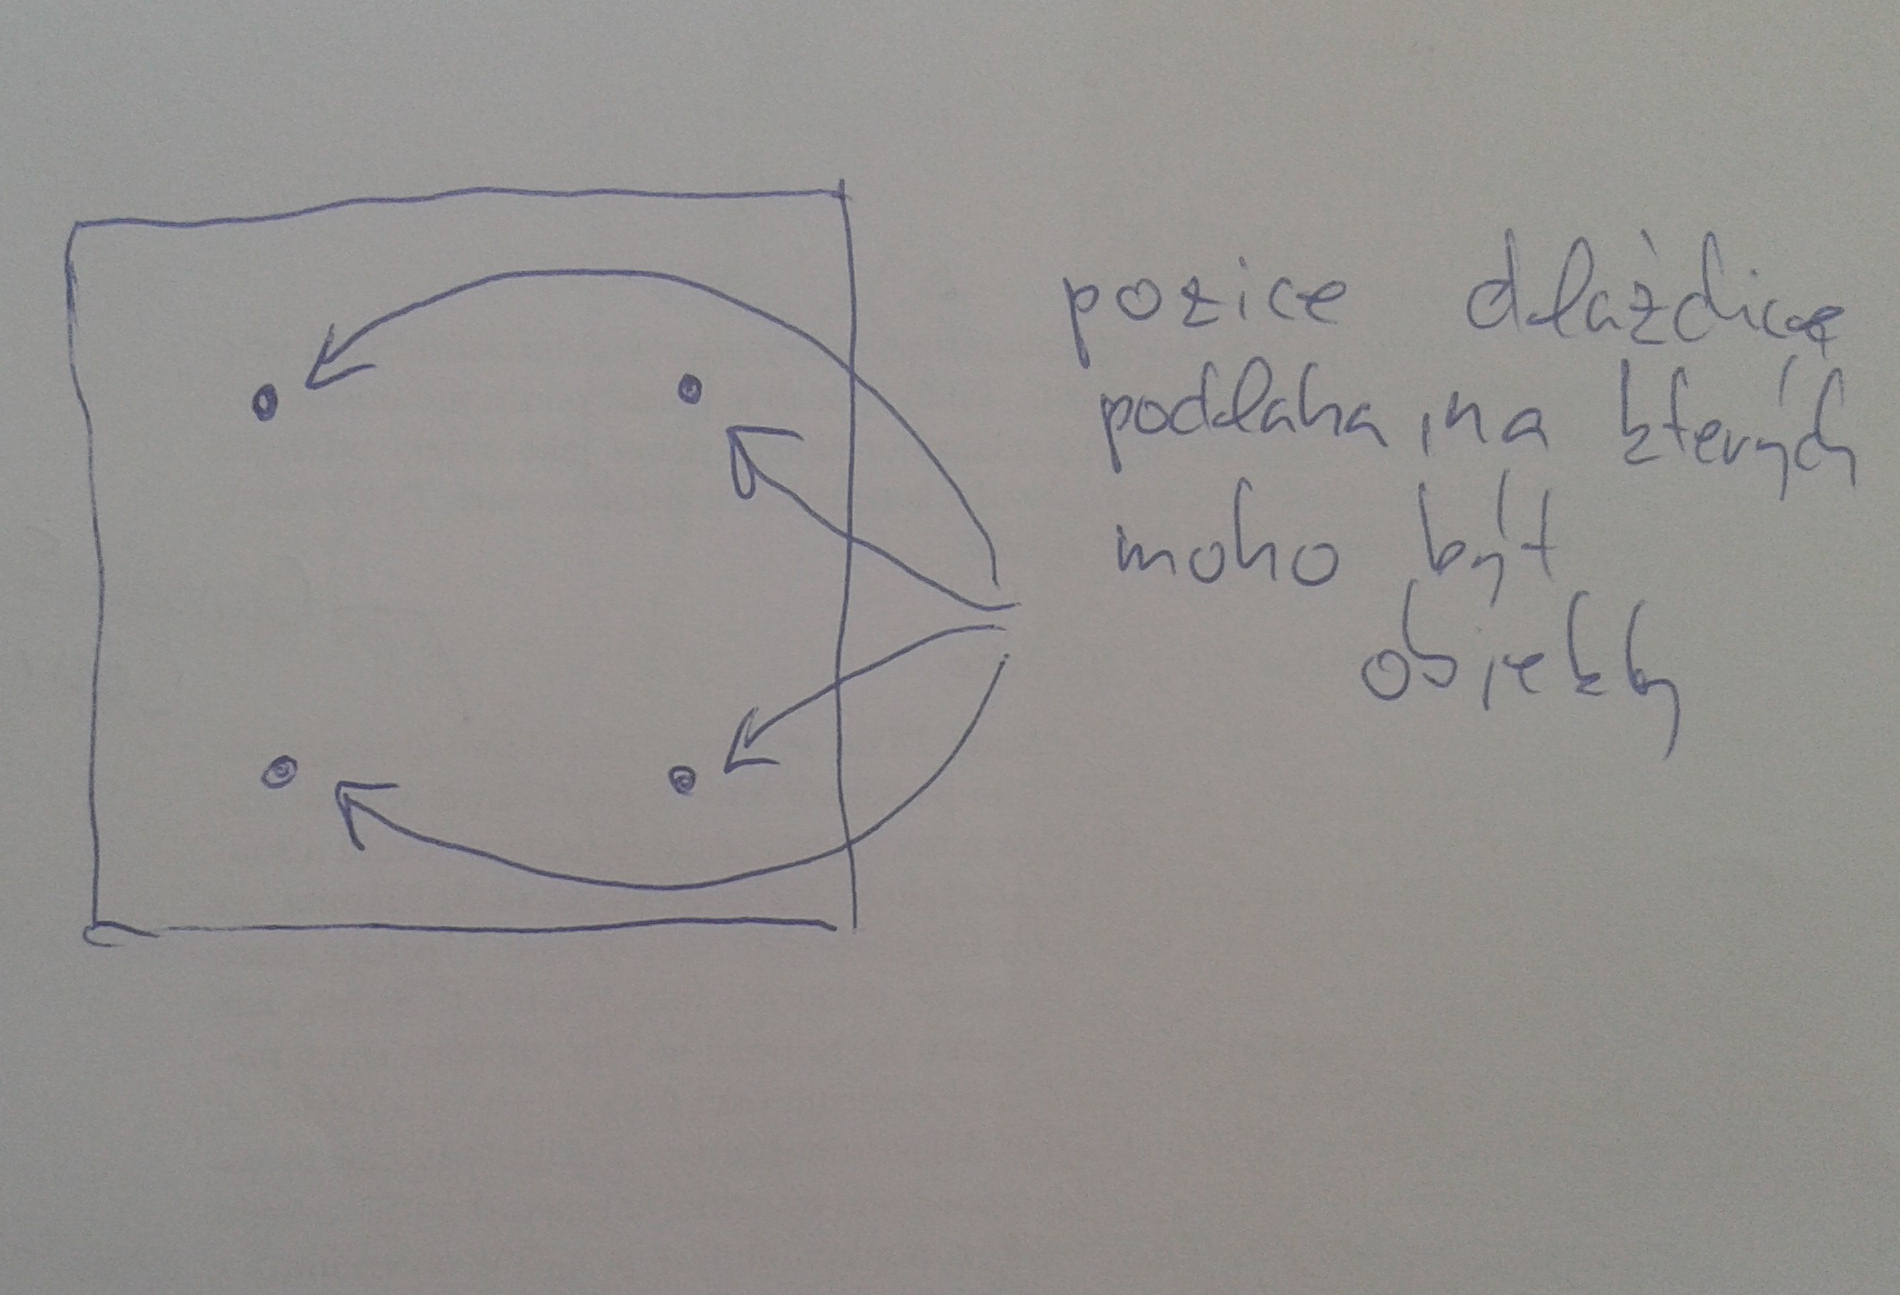 pozice dlaždice
podlaha, na kterých
moho být
objekty